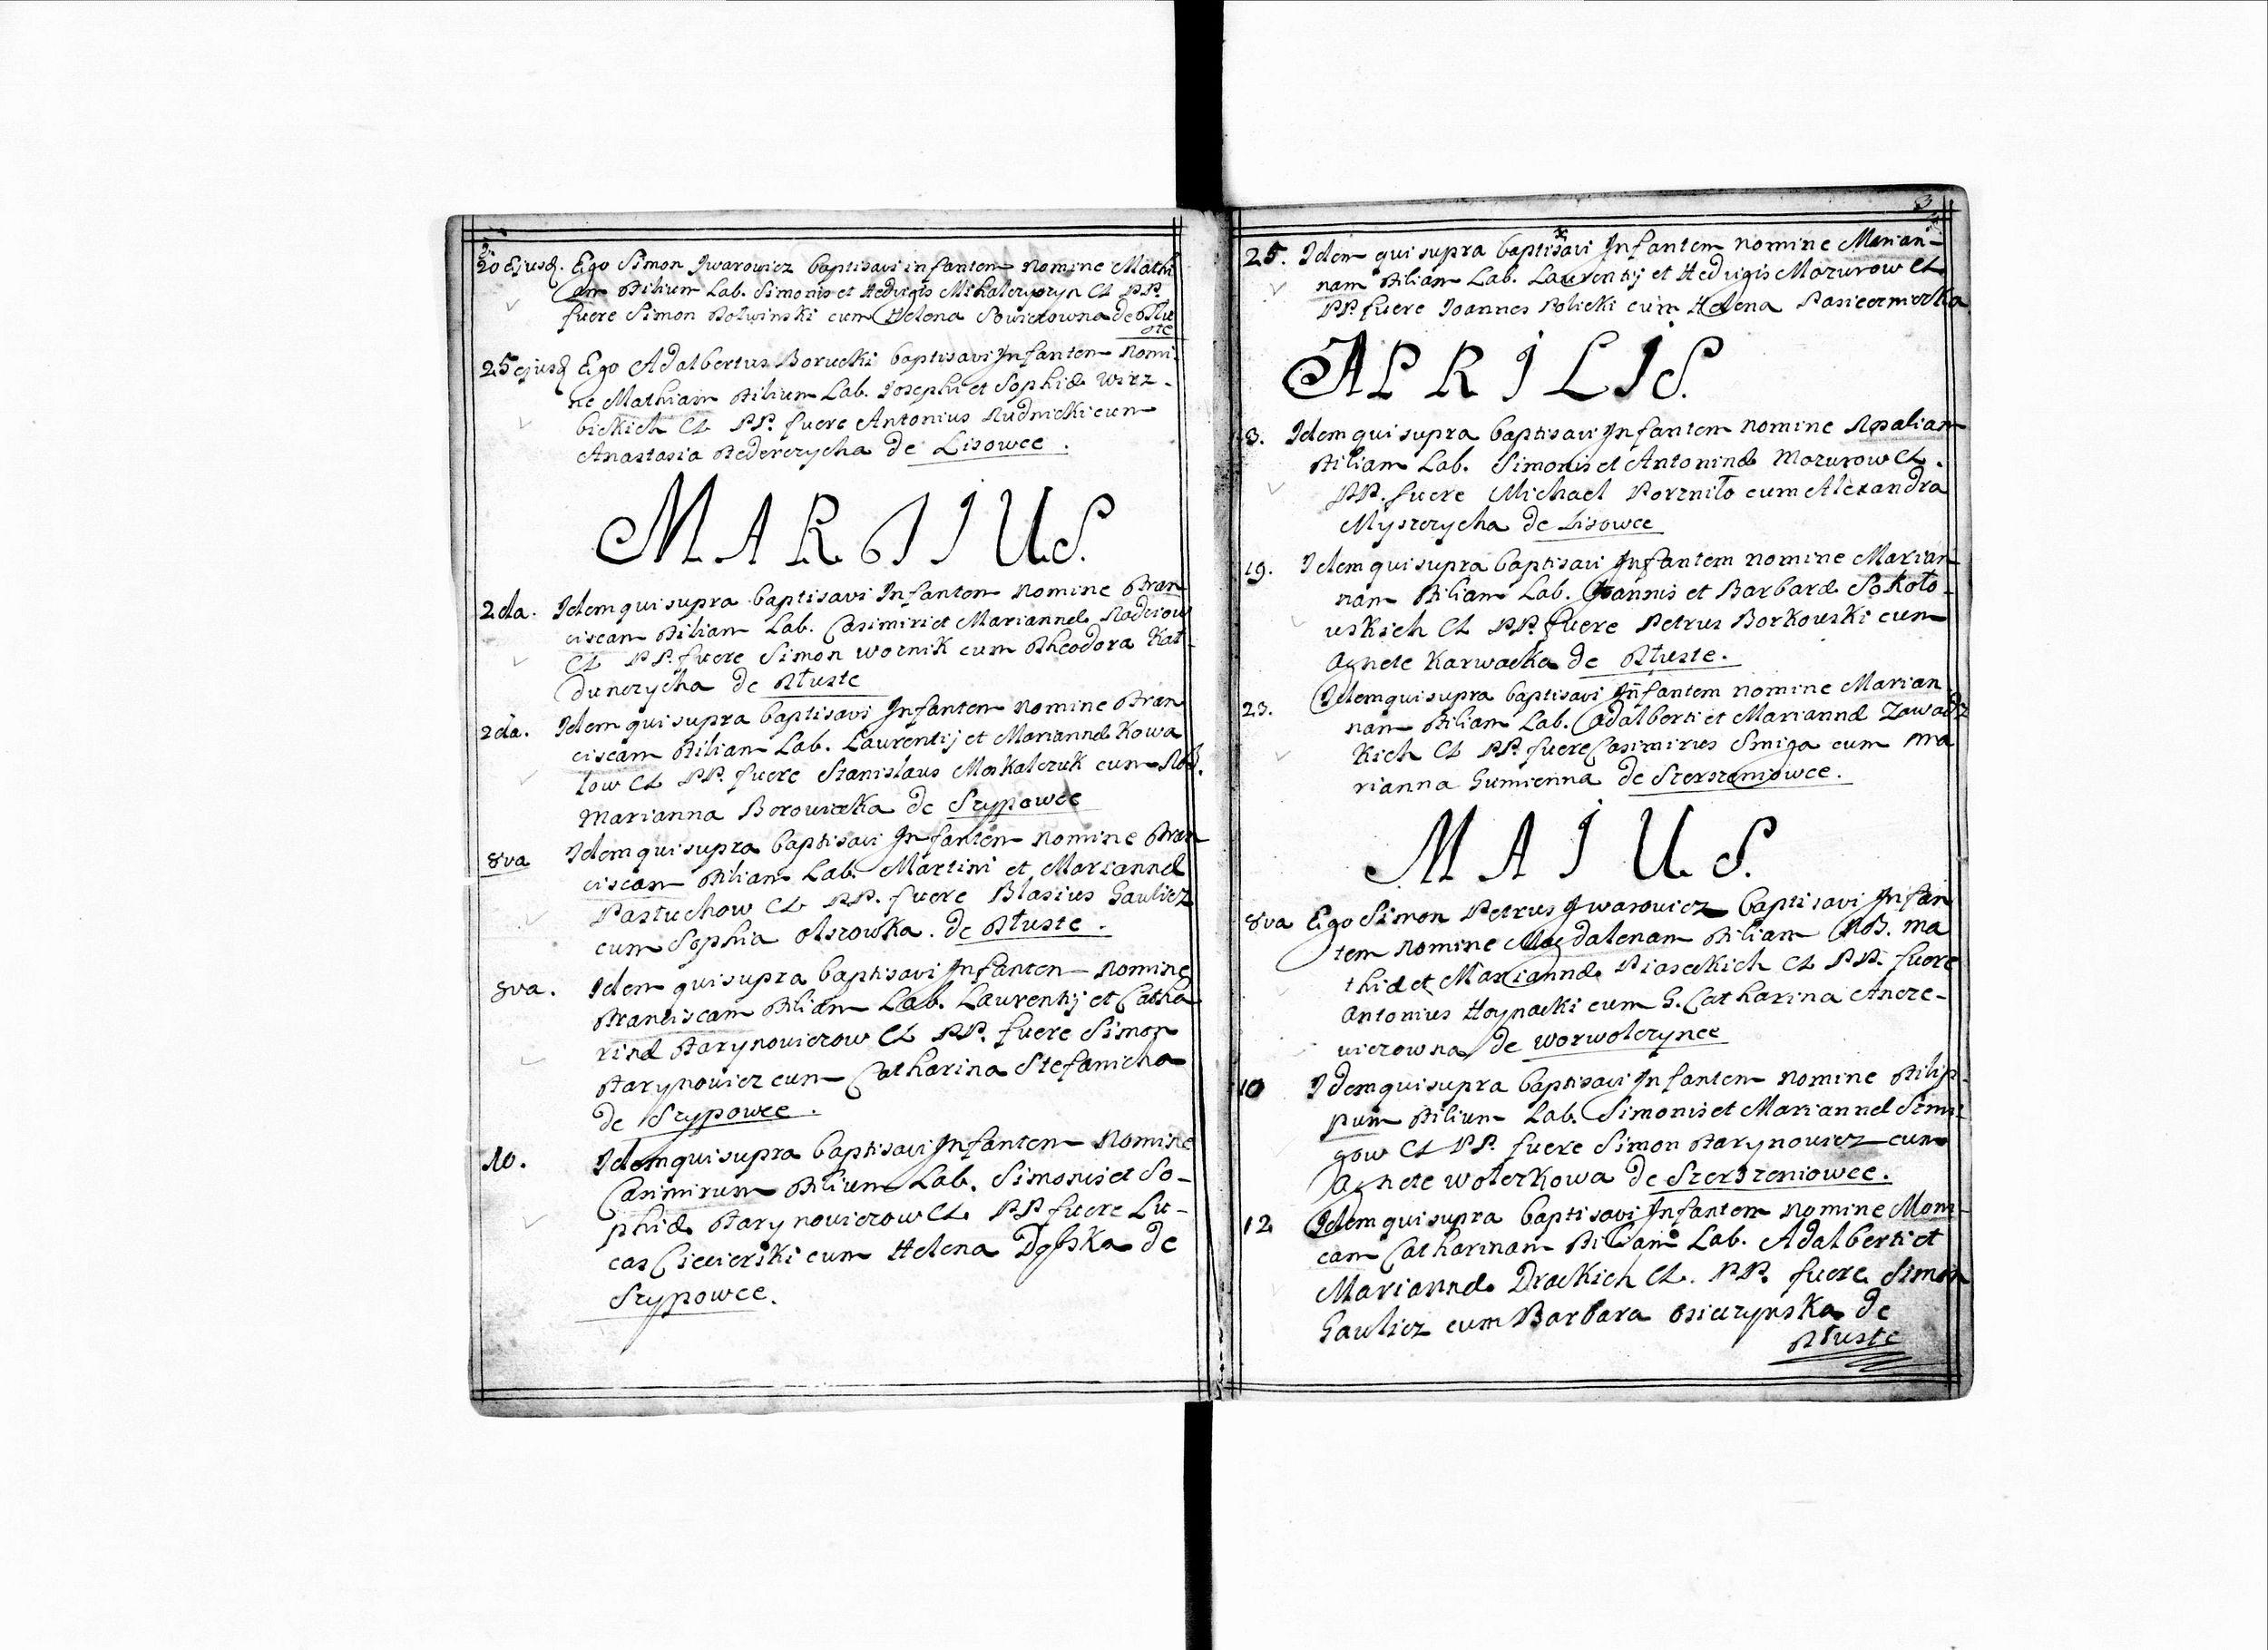 20 Ejusd. Ego Simon Jwarowicz baptisavi infantem Nomine Mathi
am Filium Lab. Simonis et Hedvigis Mihalczyszyn CL PP.
fuere Simon Potwinski cum Helena Sowiczowna de Tłu
ste
25 ejusd Ego Adalbertus Borucki baptisavi Infantem Nomi-
ne Mathiam Filium Lab. Josephi et Sophiæ Wirz-
bickich CL PP. fuere Antonius Rudnicki cum
Anastasia Federczycha de Lisowce.
MARTIUS.
2da. Idem qui supra baptisavi Infantem Nomine Fran
ciscam Filiam Lab. Casimiri et Mariannæ
CL PP. fuere Simon Woznik cum Theodora Kat-
dunczycha de Tłuste
2da. Idem qui supra baptisavi Infantem Nomine Fran
ciscam Filiam Lab. Laurentij et Mariannæ Kowa
low CL PP. fuere Stanislaus Moskalczuk cum NoB.
Marianna Borowiecka de Szypowce
8va Idem qui supra baptisavi Infantem Nomine Fran
ciscam Filiam Lab. Martini et Mariannæ
Pastuchow CL PP. fuere Blasius Gaulicz
cum Sophia Olszowka. de Tłuste.
8va. Idem qui supra baptisavi Infantem Nomine
Franciscam Filiam Lab. Laurentij et Catha
rinæ Harynowiczow CL PP. fuere Simon
Harynowicz cum Catharina Stefanicha
de Szypowce.
10. Idem qui supra baptisavi Infantem Nomine
Casimirum Filium Lab. Simonis et So-
phiæ Harynowiczow CL. PP fuere Lu-
cas Ciecierski cum Helena de
Szypowce.
3
25. Idem qui supra baptisavi Infantem nomine Marian-
nam Filiam Lab. Laurentij et Hedvigis Mazurow CL
PP. fuere Joannes Policki cum Helena Pasieczniczka
APRILIS.
3. Idem qui supra baptisavi Infantem nomine Rosaliam
Filiam Lab. Simonis et Antoninæ Mazurow CL.
PP. fuere Michael Porzniło cum Alexandra
Myszczycha de Lisowce
19. Idem qui supra baptisavi Infantem nomine Marian
nam Filiam Lab. Joannis et Barbaræ Sokoło-
wskich CL PP. fuere Petrus Borkowski cum
Agnete Karwacka de Tłuste.
23. Idem qui supra baptisavi Infantem nomine Marian
nam Filiam Lab. Adalberti et Mariannæ Zawadz
kich CL PP. fuere Casimirus Smiga cum Ma
rianna Gumienna de Szerszeniowce.
MAJUS.
8va Ego Simon Petrus Jwarowicz baptisavi Infan
tem Nomine Magdalenam Filiam NoB. Ma
thiæ et Mariannæ Piaseckich CL PP. fuere
Antonius Hoynacki cum G. Catharina Andre-
wiczowna de Worwolczynce
10 Idem qui supra baptisavi Infantem nomine Filip-
pum Filium Lab. Simonis et Mariannæ Szmi
gow CL PP. fuere Simon Harynowicz cum
Agnete Wolezkowa de Szerszeniowce.
12 Idem qui supra baptisavi Infantem nomine Moni-
cam Catharinam Filiam Lab. Adalberti et
Mariannæ Drackich CL. PP. fuere Simon
Gaulicz cum Barbara Osieczynska de
Tłuste